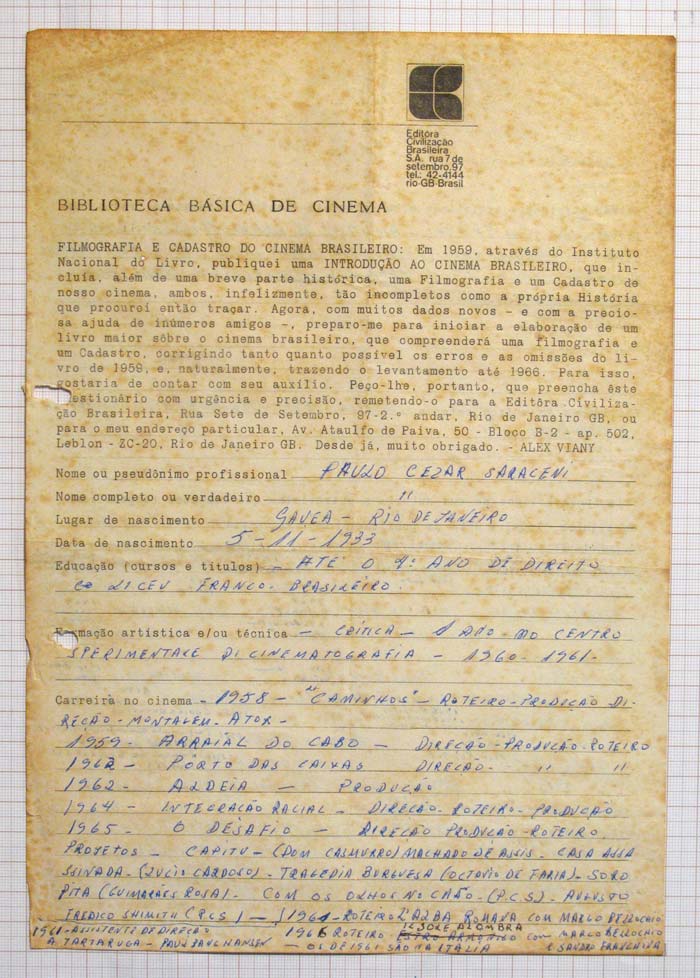 Editôra
Civilização
Brasileira
S.A. rua 7 de
setembro, 97
tel.: 42-4144
rio-GB-Brasil
BIBLIOTECA BÁSICA DE CINEMA
FILMOGRAFIA E CADASTRO DO CINEMA BRASILEIRO: Em 1959, através do Instituto
Nacional do Livro, publiquei uma INTRODUÇÃO AO CINEMA BRASILEIRO, que in-
cluía, além de uma breve parte histórica, uma Filmografia e um Cadastro de
nosso cinema, ambos, infelizmente, tão incompletos como a própria História
que procurei então traçar. Agora, com muitos dados novos - e com a precio-
sa ajuda de inúmeros amigos -, preparo-me para iniciar a elaboração de um
livro maior sôbre o cinema brasileiro, que compreenderá uma filmografia e
um Cadastro, corrigindo tanto quanto possível os erros e as omissões do li-
vro de 1959, e, naturalmente, trazendo o levantamento até 1966. Para isso,
gostaria de contar com seu auxílio. Peço-lhe, portanto, que preencha êste
uestionário com urgência e precisão, remetendo-o para a Editôra Civiliza-
ção Brasileira, Rua Sete de Setembro, 97-2.º andar, Rio de Janeiro GB, ou
para o meu endereço particular, Av. Ataulfo de Paiva, 50 - Bloco B-2 - ap. 502,
Leblon - ZC-20, Rio de Janeiro GB. Desde já, muito obrigado. - ALEX VIANY
Nome ou pseudônimo profissional PAULO CEZAR SARACENI
Nome completo ou verdadeiro "
Lugar de nascimento GAVEA - RIO DE JANEIRO
Data de nascimento 5-11-1933
Educação (cursos e títulos) - ATÉ O 4º ANO DE DIREITO
LICEU FRANCO-BRASILEIRO.
Formação artística e/ou técnica - CRÍTICA - 1 ANO - NO CENTRO
SPERIMENTALE DI CINEMATOGRAFIA - 1960-1961-
Carreira no cinema - 1958 - "CAMINHOS" - ROTEIRO - PRODUÇÃO DI-
REÇÃO - MONTAGEM - ATOR -
1959 - ARRAIAL DO CABO - DIREÇÃO - PRODUÇÃO - ROTEIRO
1962 - PÔRTO DAS CAIXAS DIREÇÃO - " "
1962 - ALDEIA - PRODUÇÃO
1964 - INTEGRAÇÃO RACIAL - DIREÇÃO - ROTEIRO - PRODUÇÃO
1965 - O DESAFIO - DIREÇÃO PRODUÇÃO - ROTEIRO.
PROJETOS - CAPITU - (DOM CASMURRO) MACHADO DE ASSIS - CASA ASSA
SSINADA - (LUCIO CARDOSO) - TRAGEDIA BURGUESA (OCTAVIO DE FARIA) - SORO
PITA (GUIMARÃES ROSA) - COM OS OLHOS NO CHÃO - (P.C.S.) - AUGUSTO
FREDICO SHIMITH (P.C.S) - 1961 - ROTEIRO L'ALBA ROMANA COM MARCO BELLOCHIO
IL SOLE A L'OMBRA
1961 - ASSISTENTE DE DIREÇÃO 1961 ROTEIRO COM MARCO BELLOCHIO
A TARTARUGA - PAUL BANG HANSEN - OS DE 1961 SÃO NA ITÁLIA E SANDRO FRANCHINA